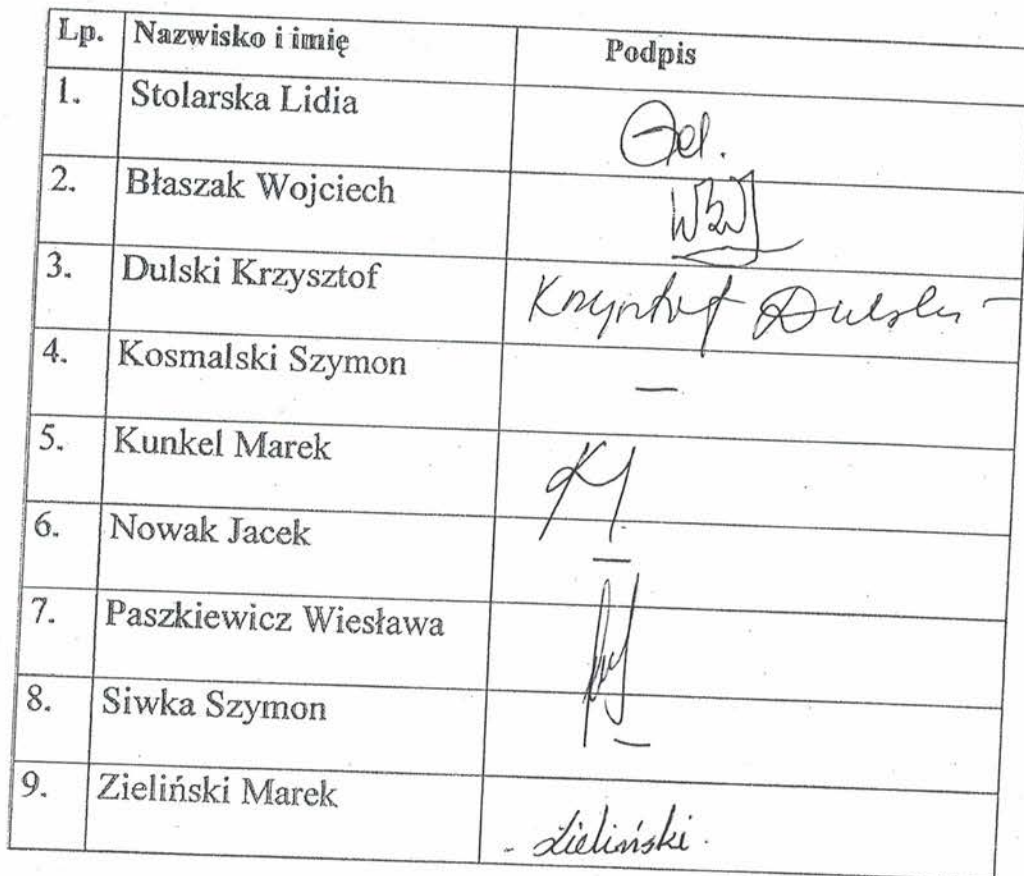 Lp. Nazwisko i imię Podpis
1. Stolarska Lidia
2. Błaszak Wojciech
3. Dulski Krzysztof Krzysztof Dulski
4. Kosmalski Szymon —
5. Kunkel Marek
6. Nowak Jacek —
7. Paszkiewicz Wiesława
8. Siwka Szymon —
9. Zieliński Marek - Zieliński.